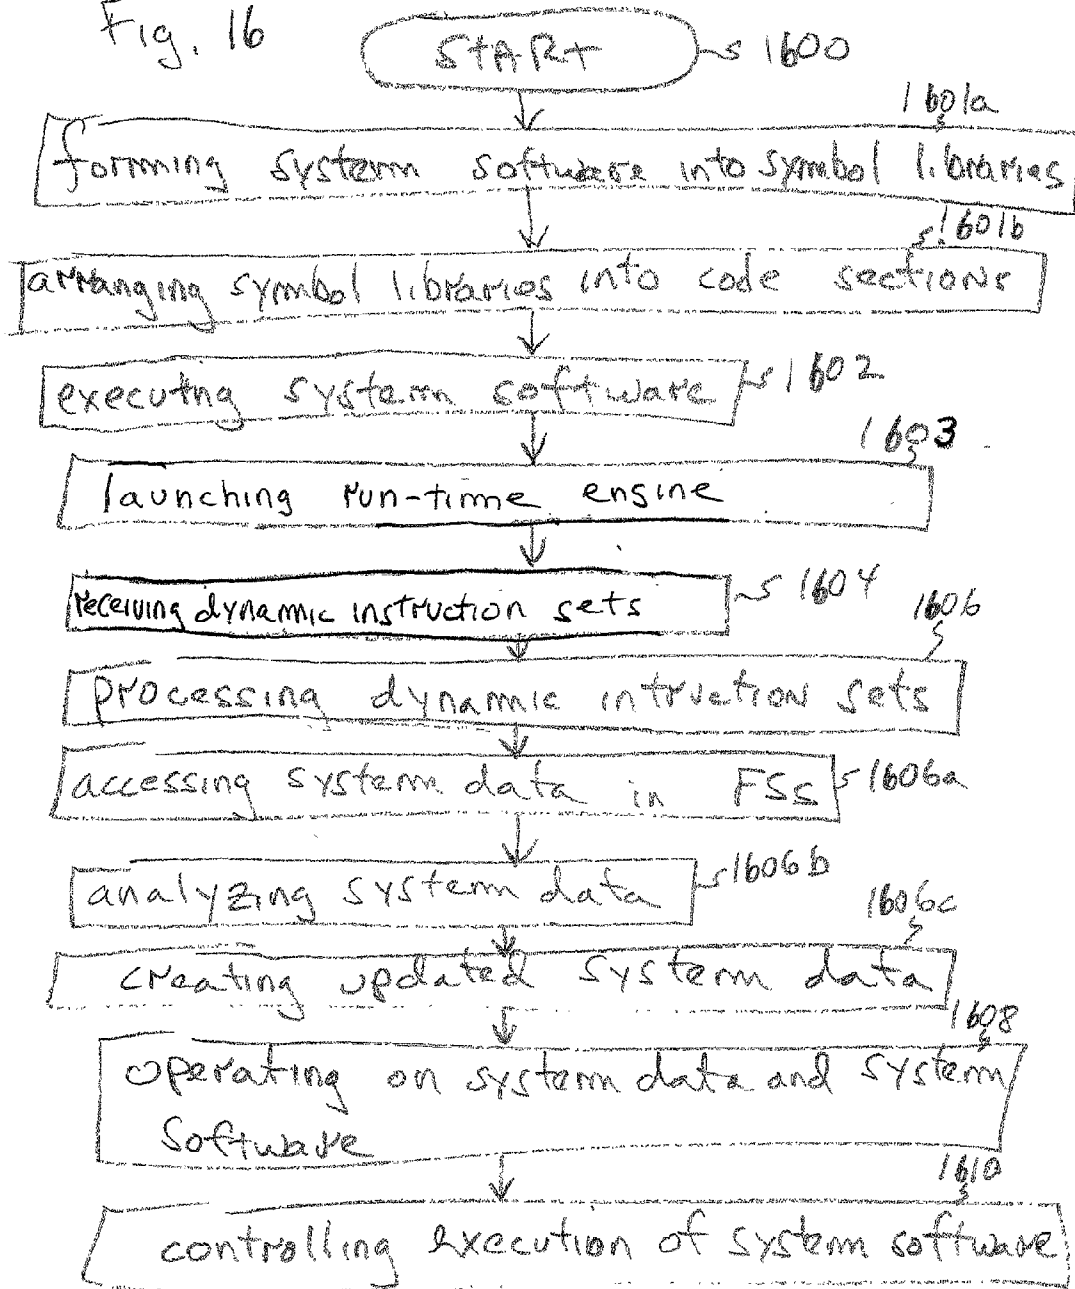 Fig. 16
START 1600
1601a
forming system software into symbol libraries
1601b
arranging symbol libraries into code sections
executing system software 1602
1603
launching run-time engine
receiving dynamic instruction sets 1604
1606
processing dynamic intruction sets
accessing system data in FSs 1606a
analyzing system data 1606b
1606c
creating updated system data
1608
operating on system data and system
software
1610
controlling execution of system software